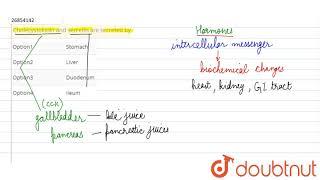 26854142
Cholecystokinin and secretin are secreted by:
Option1 Stomach
Option2 Liver
Option3 Duodenum
Option4 Ileum
Hormones
intercellular messenger
biochemical changes
heart, kidney, GI tract
(CCK)
gallbladder — bile juice
pancreas — pancreatic juices
doubtnut